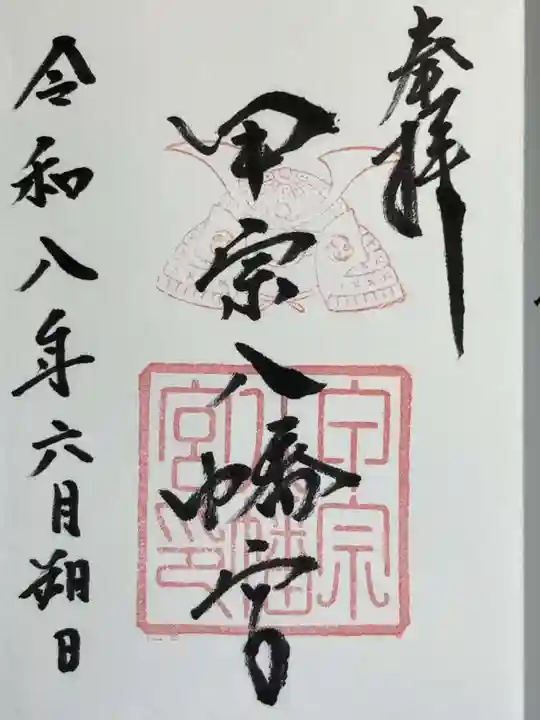 奉拝
甲宗八幡宮
甲宗八幡宮印
令和八年六月朔日